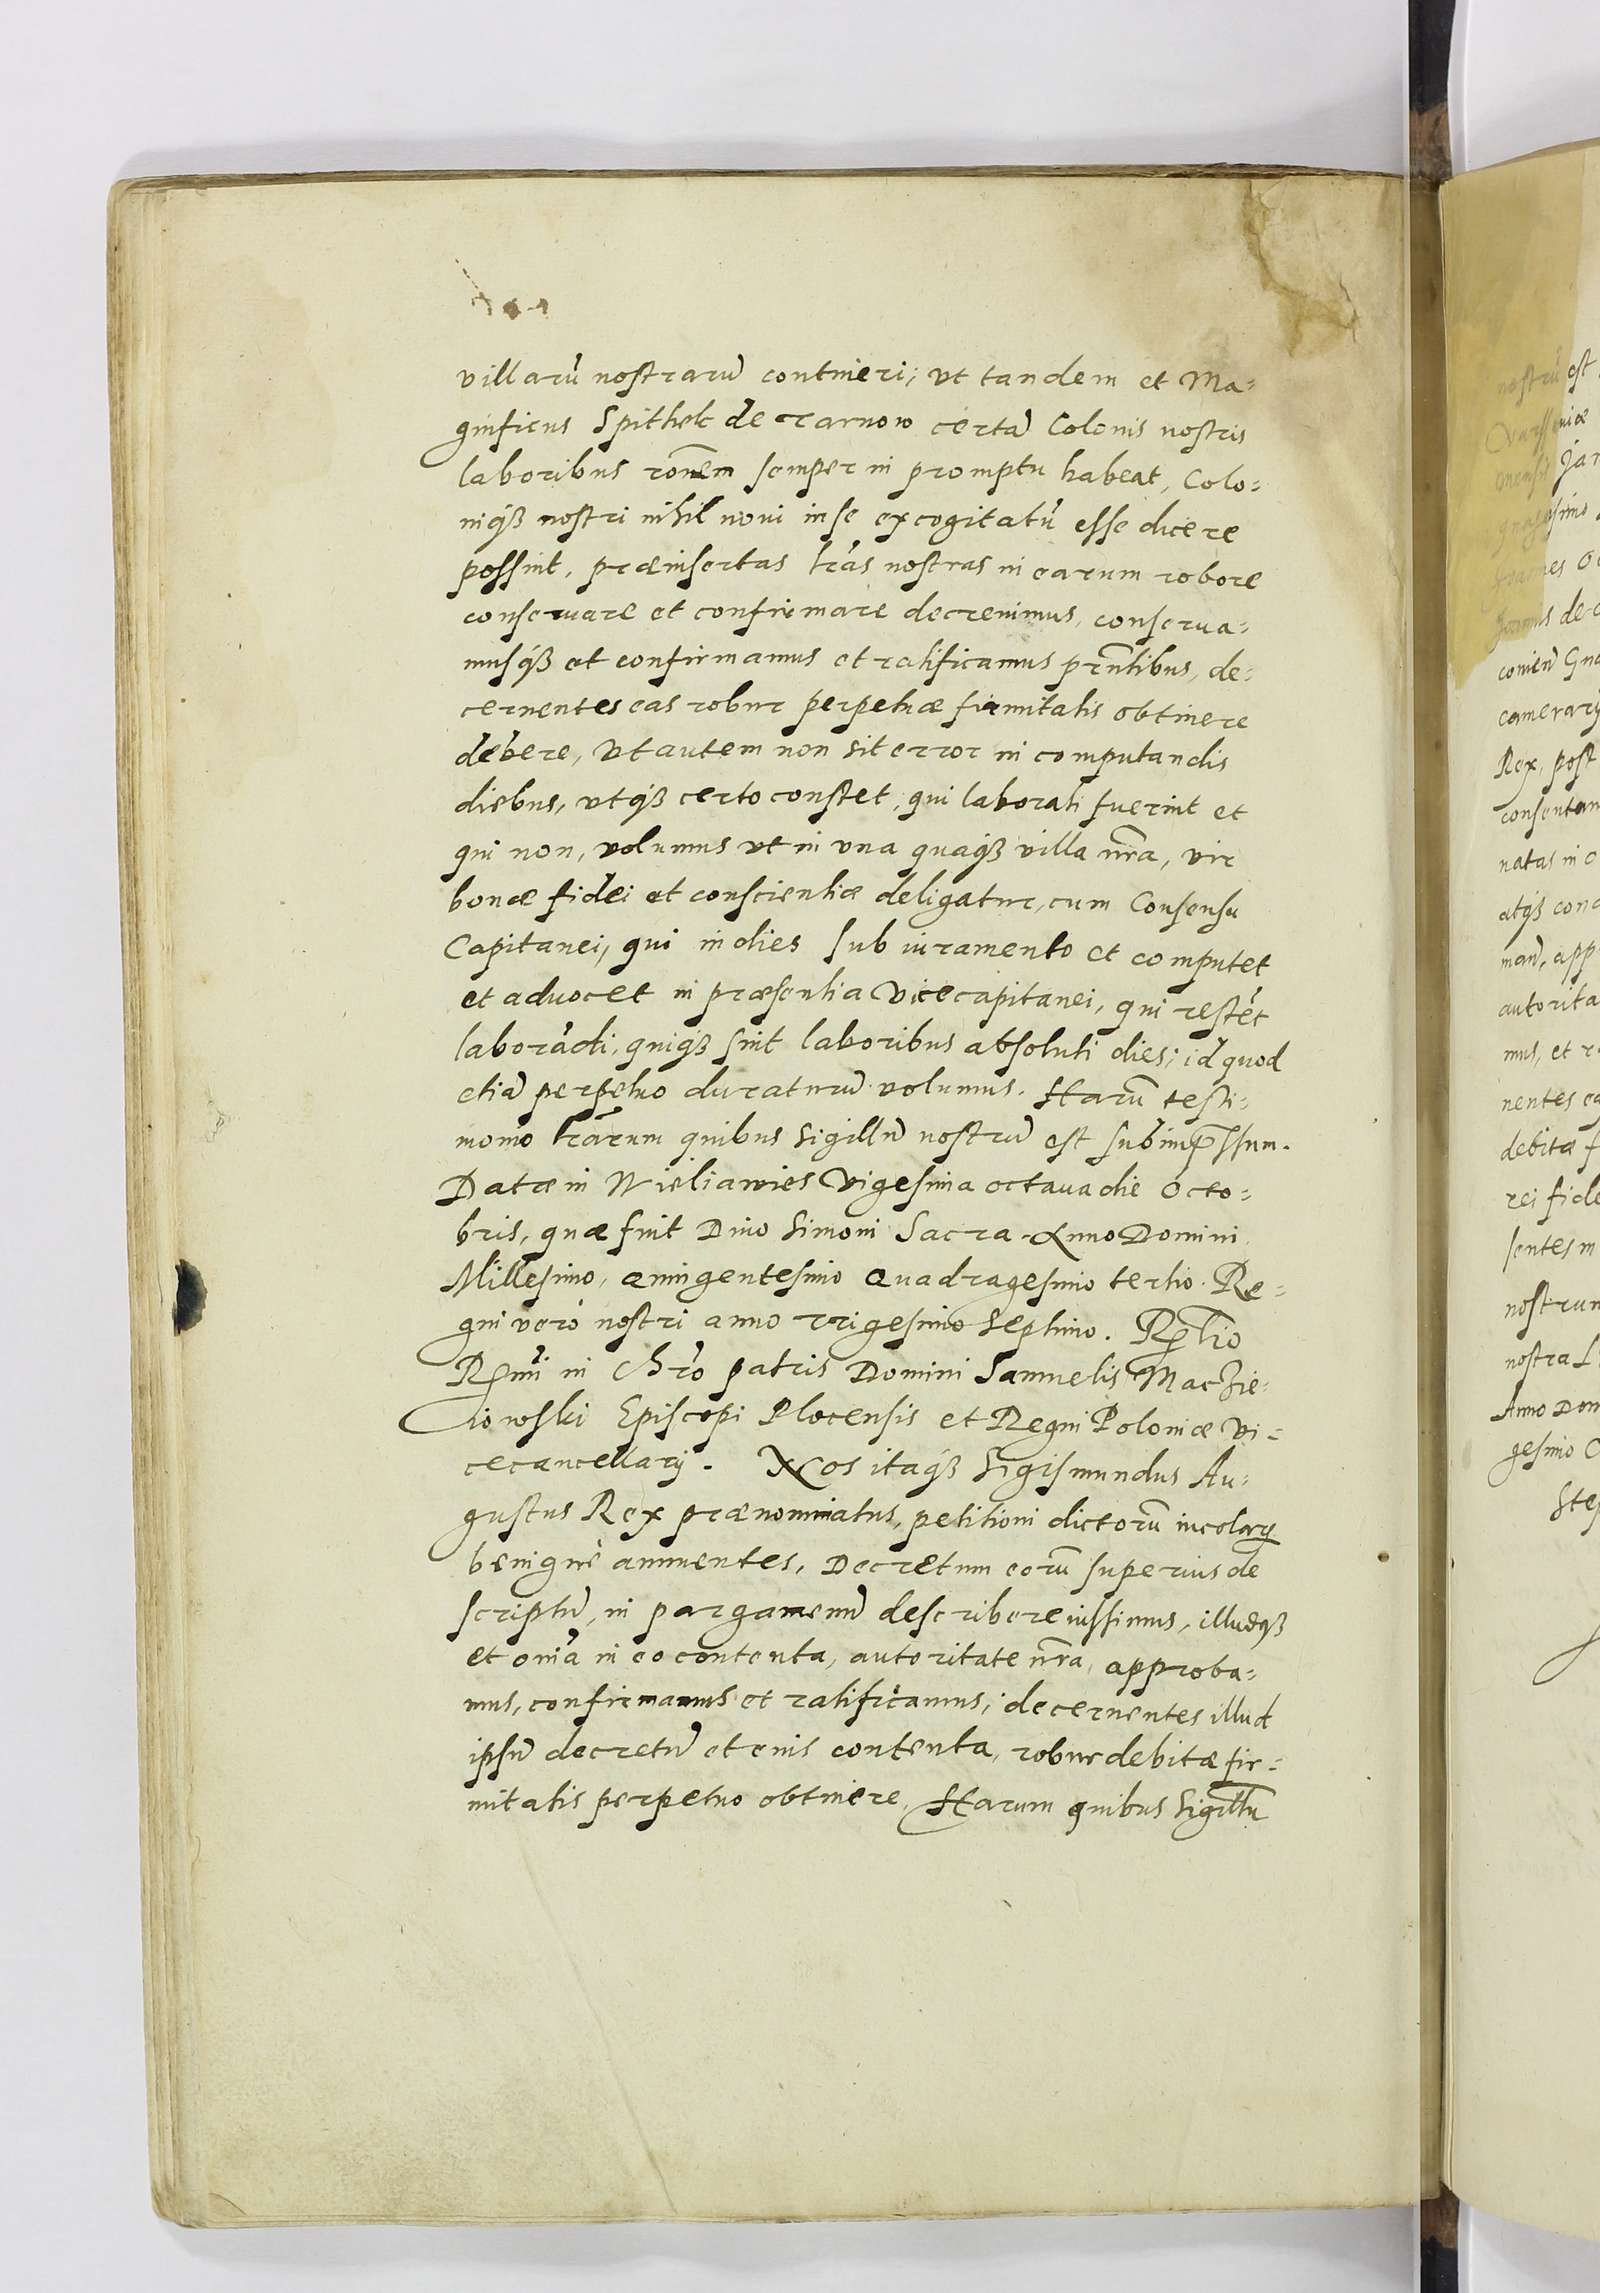 villarũ nostrarũ contineri, ut tandem et Ma=
gnificus Spithek de Tarnow certã Colonis nostris
laboribus rõnem semper in promptu habeat, Colo=
niq́ꝫ nostri nihil noui in se excogitatũ esse dicere
possint, præinsertas lr̃as nostras in earum robore
conseruare et confirmare decreuimus, conserua=
musq́ꝫ et confirmamus et ratificamus pr̃ntibus, de=
cernentes eas robur perpetuæ firmitatis obtinere
debere, Ut autem non sit error in computandis
diebus, utq́ꝫ certo constet, qui laborati fuerint et
qui non, volumus ut in una quaq́ꝫ villa nr̃a, vir
bonæ fidei et conscientiæ deligatur, cum Consensu
Capitanei, qui in dies sub iuramento et computet
et aduocet in præsentia Vicecapitanei, qui restẽt
laborãdi, quiq́ꝫ sint laboribus absoluti dies; id quod
etiã perpetuo duraturũ volumus. Harũ testi=
monio lr̃arum quibus Sigillũ nostrũ est subimp̃ssum.
Datæ in Wieliawies Vigesima octaua die Octo=
bris, quæ fuit Diuo Simoni Sacra. Anno Domini
Millesimo, Quingentesimo Quadragesimo tertio. Re=
gni verò nostri anno Trigesimo Septimo. R̃latio
R̃mi in Chr̃o patris Domini Samuelis Maczie=
iowski Episcopi Plocensis et Regni Poloniæ Vi=
cecancellarij. Nos itaq́ꝫ Sigismundus Au=
gustus Rex prænominatus, petitioni dictorũ incolarꝝ
benignè annuentes, Decretum eorũ superius de
scriptũ, in pargamenũ describere iussimus, illudqꝫ
et om̃ia in eo contenta, autoritate nr̃a, approba=
mus, confirmamus et ratificamus; decernentes illud
ipsũ decretũ et om̃is contenta, robur debitæ fir=
mitatis perpetuo obtinere, Harum quibus Sigillũ
nostrũ est
Jan
comen
camerarij
Rex, post
natas in
atq́ꝫ
autorita
mus, et
nentes
debitæ
rei fide
sentes
nostrum
nostra
Anno Dom
gesimo
Step